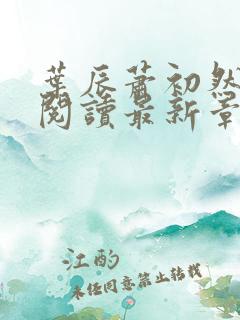 葉辰蕭初然
閱讀最新章
江酌
未任同意禁止转载